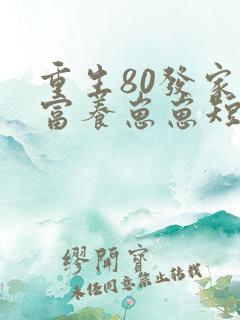 重生80發家
富養崽崽短
繆開寶
未经同意禁止转载